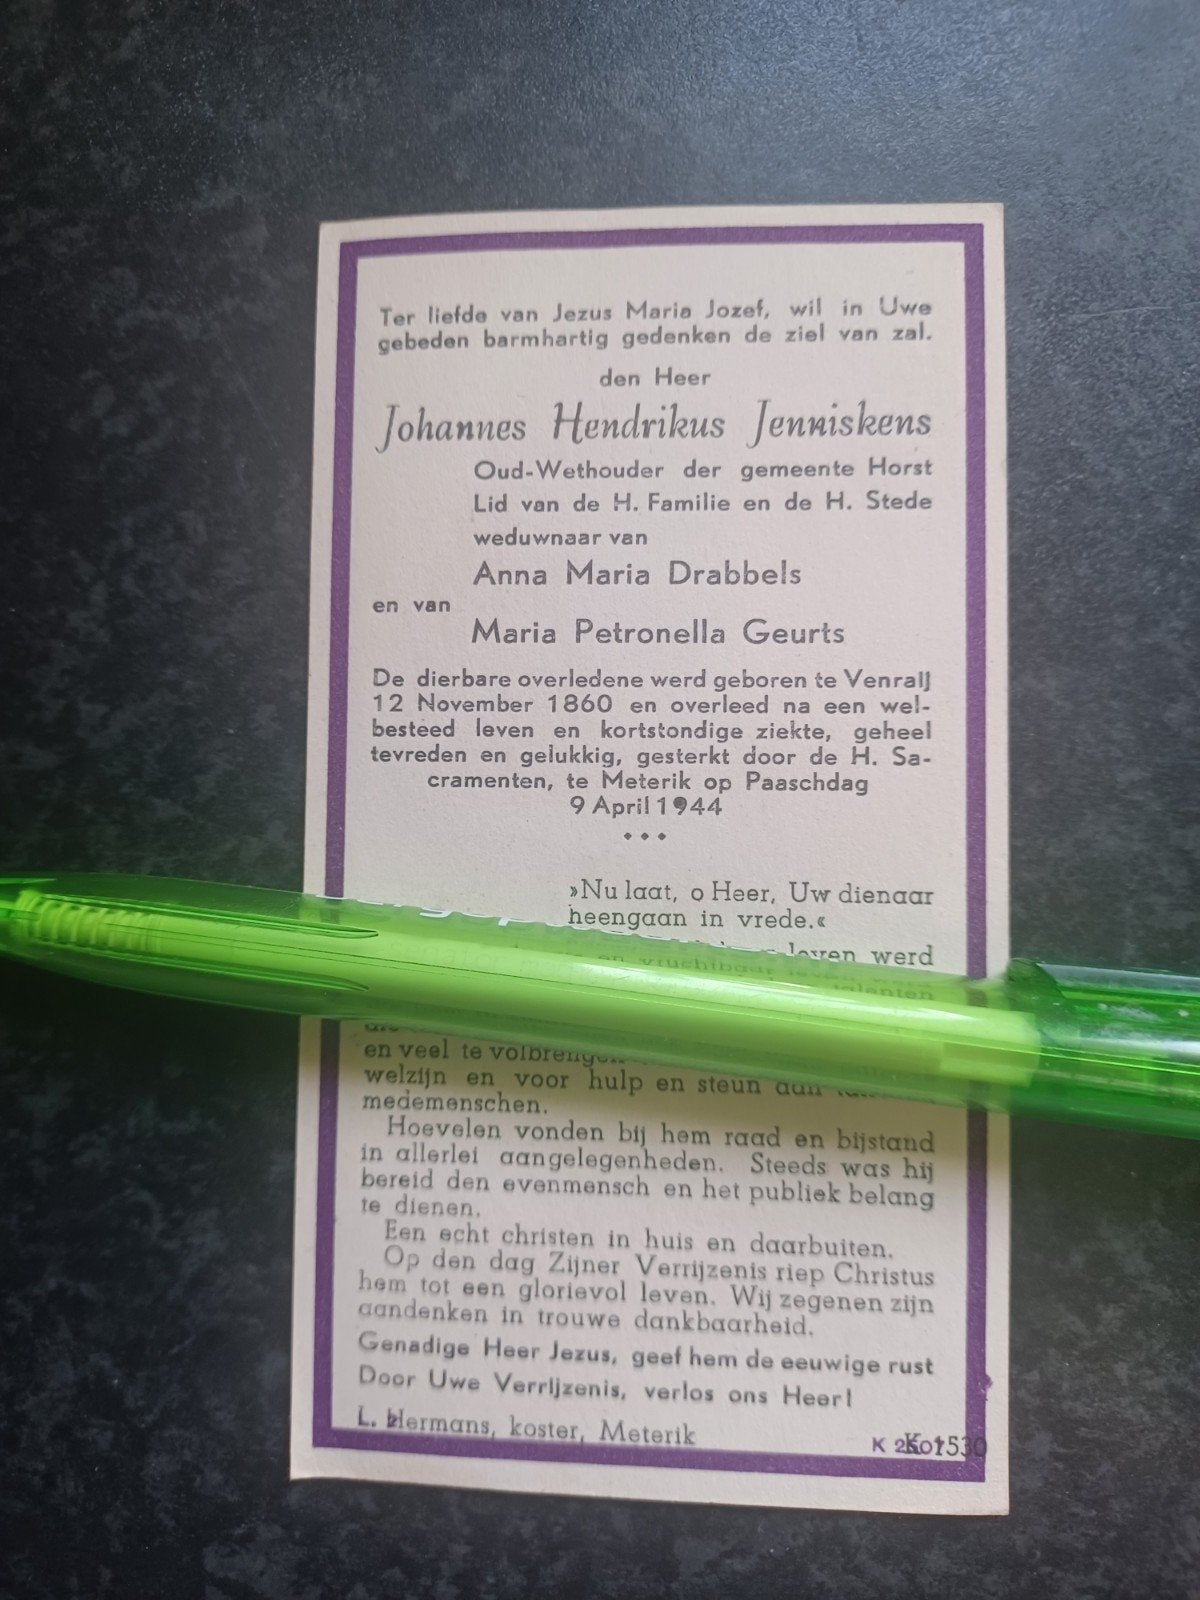 Ter liefde van Jezus Maria Jozef, wil in Uwe
gebeden barmhartig gedenken de ziel van zal.
den Heer
Johannes Hendrikus Jenniskens
Oud-Wethouder der gemeente Horst
Lid van de H. Familie en de H. Stede
weduwnaar van
Anna Maria Drabbels
en van
Maria Petronella Geurts
De dierbare overledene werd geboren te Venraij
12 November 1860 en overleed na een wel-
besteed leven en kortstondige ziekte, geheel
tevreden en gelukkig, gesterkt door de H. Sa-
cramenten, te Meterik op Paaschdag
9 April 1944
»Nu laat, o Heer, Uw dienaar
heengaan in vrede.«
leven werd
talenten
en veel te volbrengen
welzijn en voor hulp en steun aan
medemenschen.
Hoevelen vonden bij hem raad en bijstand
in allerlei aangelegenheden. Steeds was hij
bereid den evenmensch en het publiek belang
te dienen.
Een echt christen in huis en daarbuiten.
Op den dag Zijner Verrijzenis riep Christus
hem tot een glorievol leven. Wij zegenen zijn
aandenken in trouwe dankbaarheid.
Genadige Heer Jezus, geef hem de eeuwige rust
Door Uwe Verrijzenis, verlos ons Heer!
L. Hermans, koster, Meterik